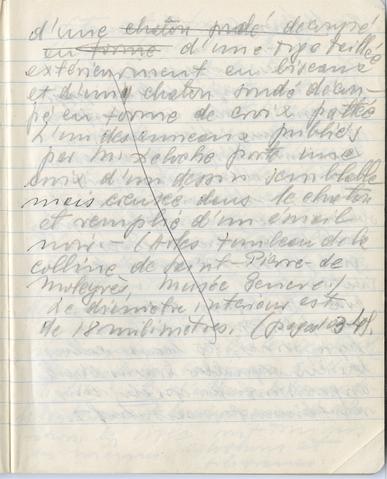 d'une ~~chaton ondé~~ découpé
~~en forme~~ d'une tige taillée
extérieurement en biseaux
et d'un chaton ondé décou-
pé en forme de croix pattée
L'un des anneaux publiés
par M. Deloche porte une
croix d'un dessin semblable
mais creusée dans le chaton
et remplie d'un émail
noir. - (Arles tombeau de la
colline de Saint-Pierre-de
Moleyrès, musée
Le diamètre intérieur est
de 18 milimètres. (pages